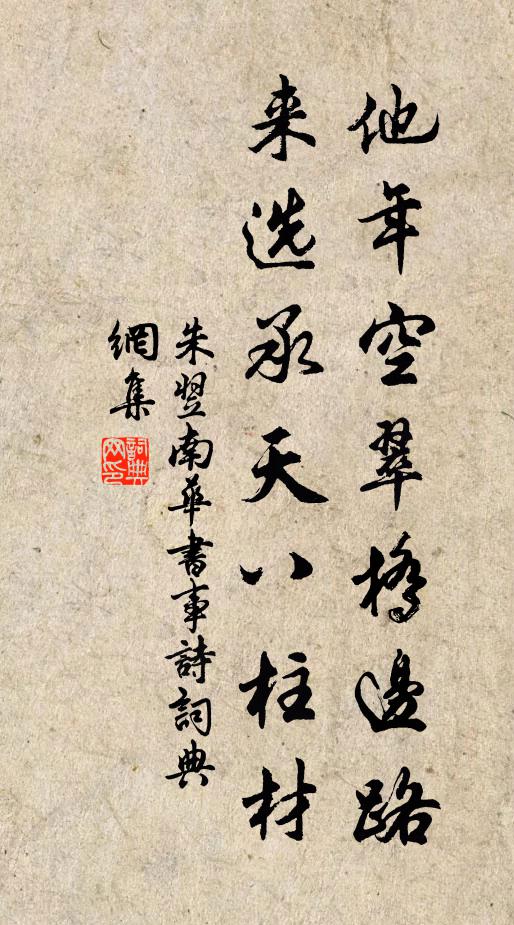 他年空翠橋邊路
来选承天八柱材
朱翌南華書事詩詞典
網集
詞典网印